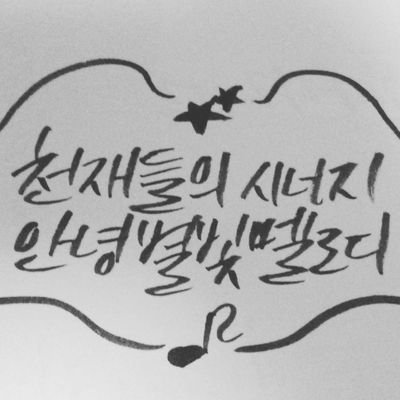 천재들의 시너지
안녕 별빛멜로디